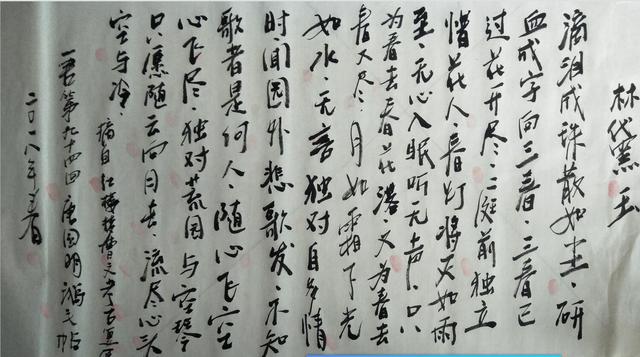 林代黛玉
滴泪成珠散如尘、研
血成字向三春、三春已
过花开尽、二庭前独立
惜花人、春灯将灭如雨
至、无心入眠听无声、只
为春去春花落、又为春去
春又尽、月如霜下光
如水、无言独对自多情
时闻园外悲歌发、不知
歌者是何人、随心飞空
心飞尽、独对荒园与空琴
只愿随云向月去、流尽心头
空与冷、
摘自红楼
吾第九十四回唐国明
二〇一八年春